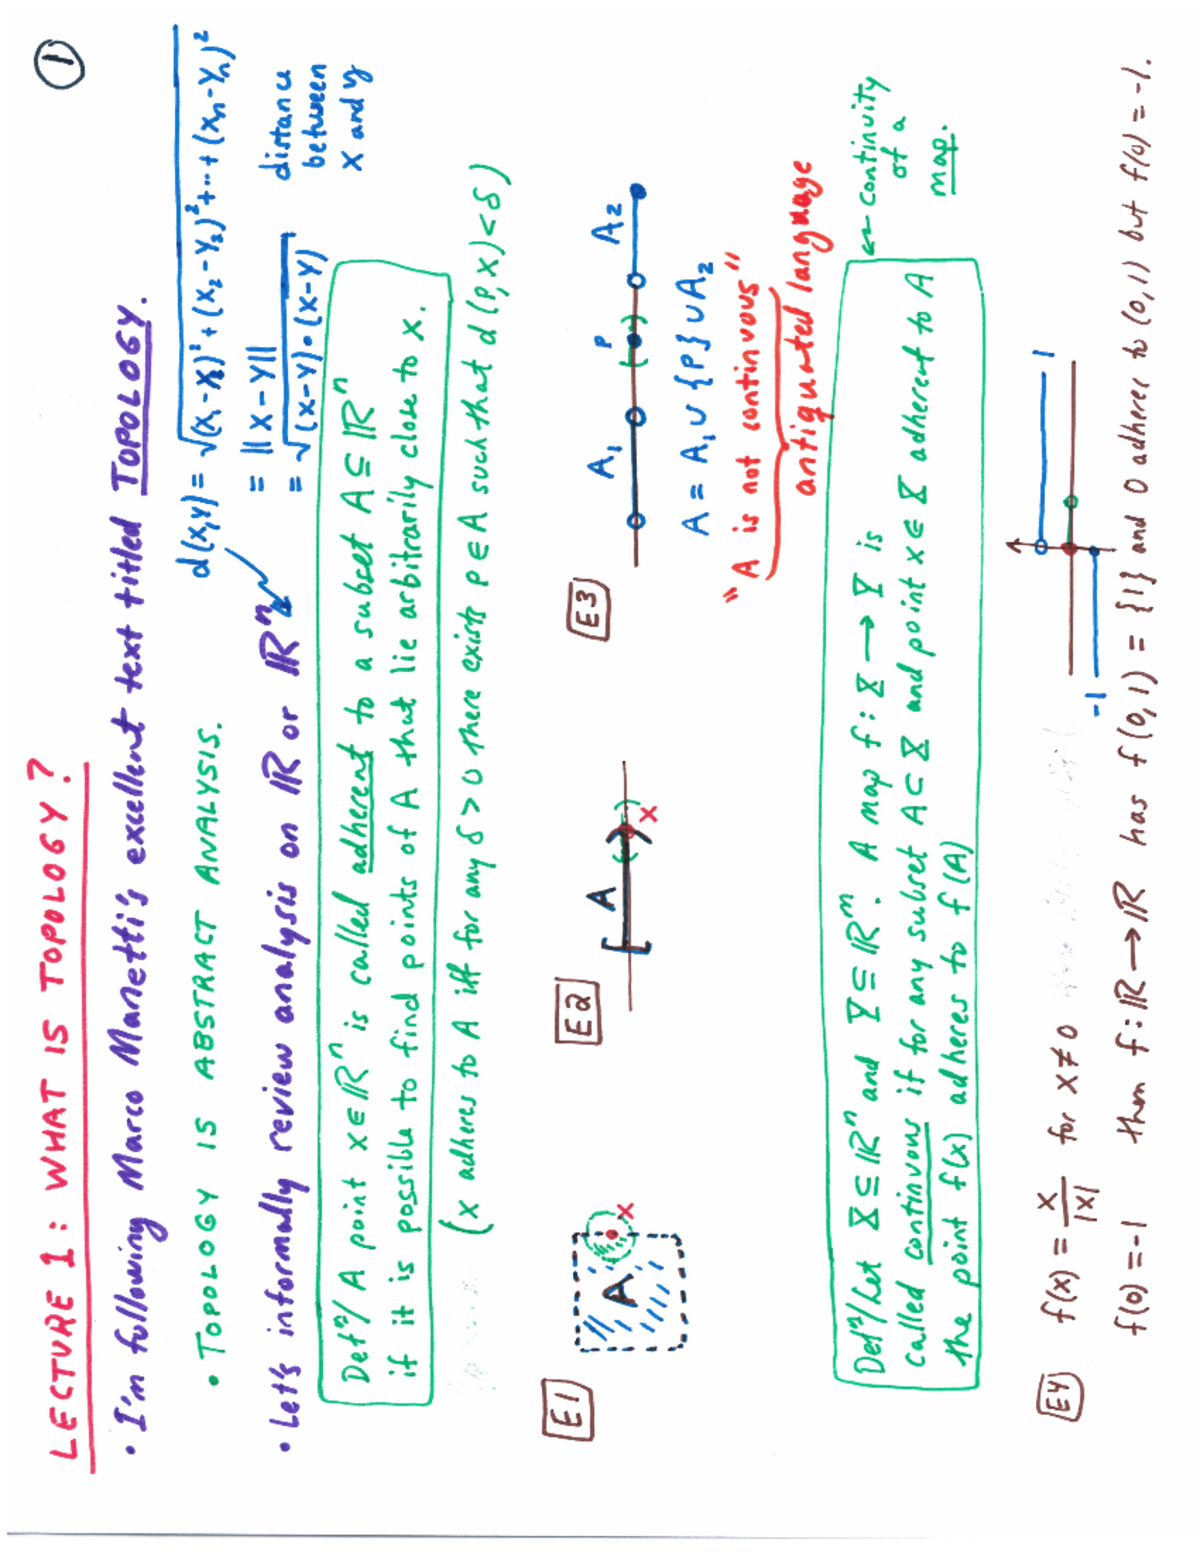 ①
LECTURE 1: WHAT IS TOPOLOGY?
• I'm following Marco Manetti's excellent text titled TOPOLOGY.
• TOPOLOGY IS ABSTRACT ANALYSIS.
d(x,y) = √(x₁-y₁)² + (x₂-y₂)² + ⋯ + (xₙ-yₙ)²
= ||x-y||
= √(x-y)•(x-y)
distance
between
x and y
• Let's informally review analysis on ℝ or ℝⁿ
Defⁿ/ A point x∈ℝⁿ is called adherent to a subset A⊆ℝⁿ
if it is possible to find points of A that lie arbitrarily close to x.
(x adheres to A iff for any δ>0 there exists p∈A such that d(p,x)<δ)
E1
A
x
E2
A
x
E3
A₁ p A₂
A = A₁∪{p}∪A₂
"A is not continuous"
antiquated language
Defⁿ/ Let X⊆ℝⁿ and Y⊆ℝᵐ. A map f: X→Y is
called continuous if for any subset A⊂X and point x∈X adherent to A
the point f(x) adheres to f(A)
← continuity
of a
map.
E4
f(x) = x/|x| for x≠0
f(0) = -1
1
-1
then f:ℝ→ℝ has f(0,1) = {1} and 0 adheres to (0,1) but f(0) = -1.